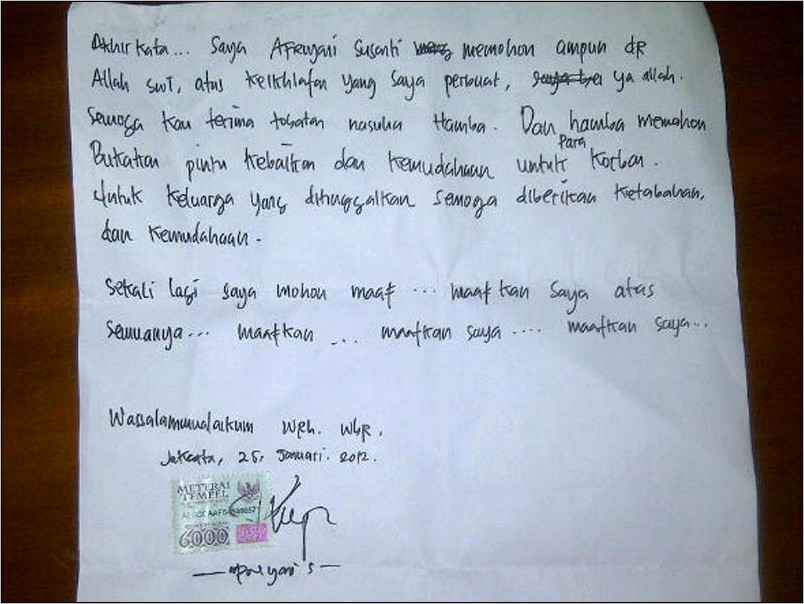 Akhir kata... Saya Afriyani Susanti memohon ampun dr
Allah swt, atas kekhilafan yang saya perbuat, ya allah.
Semoga kau terima tobatan nasuha Hamba. Dan hamba memohon
Bukakan pintu kebaikan dan kemudahaan untuk para korban.
Untuk keluarga yang ditinggalkan semoga diberikan ketabahan,
dan kemudahaan.
Sekali lagi saya mohon maaf... maafkan saya atas
semuanya... maafkan ... maafkan saya .... maafkan saya...
Wassalammualaikum Wrh. Wbr.
Jakarta, 25, Januari. 2012.
METERAI
TEMPEL
6000
Afriyani S